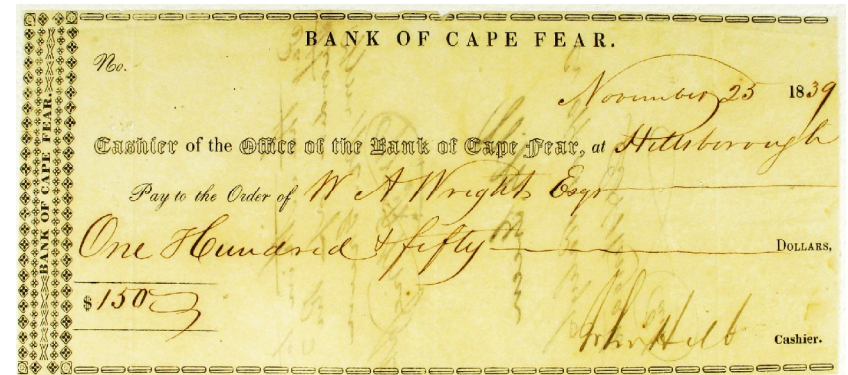 BANK OF CAPE FEAR.
BANK OF CAPE FEAR.
No.
November 25 1839
Cashier of the Office of the Bank of Cape Fear, at Hillsborough
Pay to the Order of W A Wright Esqr
One Hundred & fifty DOLLARS,
$ 150
John Hill Cashier.